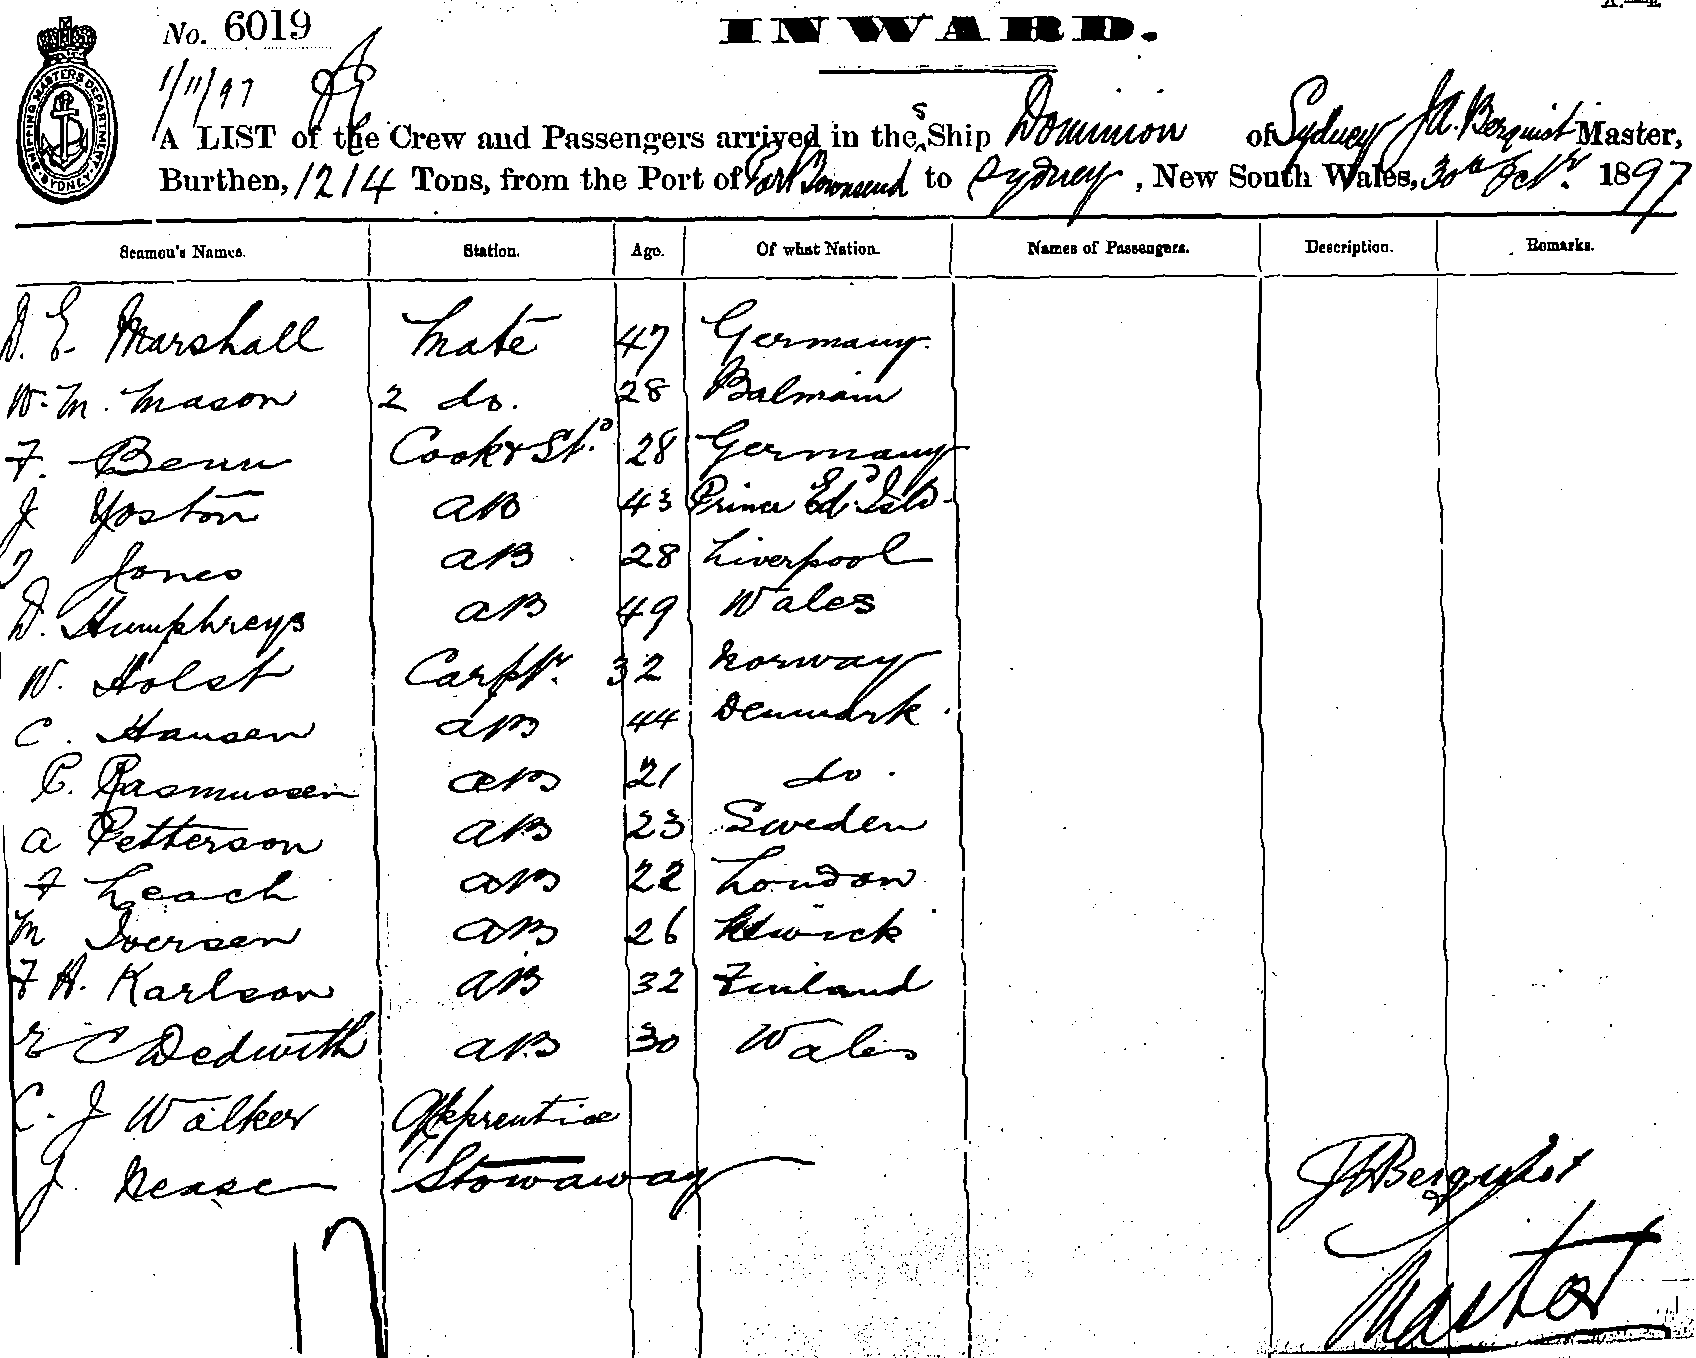 No. 6019
INWARD.
SHIPPING MASTERS DEPARTMENT SYDNEY
1/11/97
A LIST of the Crew and Passengers arrived in the s Ship Dominion of Sydney J A. Berquist Master,
Burthen, 1214 Tons, from the Port of Port Townsend to Sydney, New South Wales, 30th Octr. 1897
Seamen's Names. Station. Age. Of what Nation. Names of Passengers. Description. Remarks.
D. E. Marshall Mate 47 Germany.
W. M. Mason 2 do. 28 Balmain
F. Benn Cook & Std. 28 Germany
J Yoston AB 43 Prince Ed. Isld.
Jones AB 28 Liverpool
D. Humphreys AB 49 Wales
W. Holst Carpr. 32 Norway
C. Hansen AB 44 Denmark.
C. Rasmussen AB 21 do.
A Petterson AB 23 Sweden
F Leach AB 22 London
M Iversen AB 26
F H. Karlson AB 32 Finland
E C Dedwith AB 30 Wales
C. J Walker Apprentice
J. Nease Stowaway
J A Berquist
17
Master